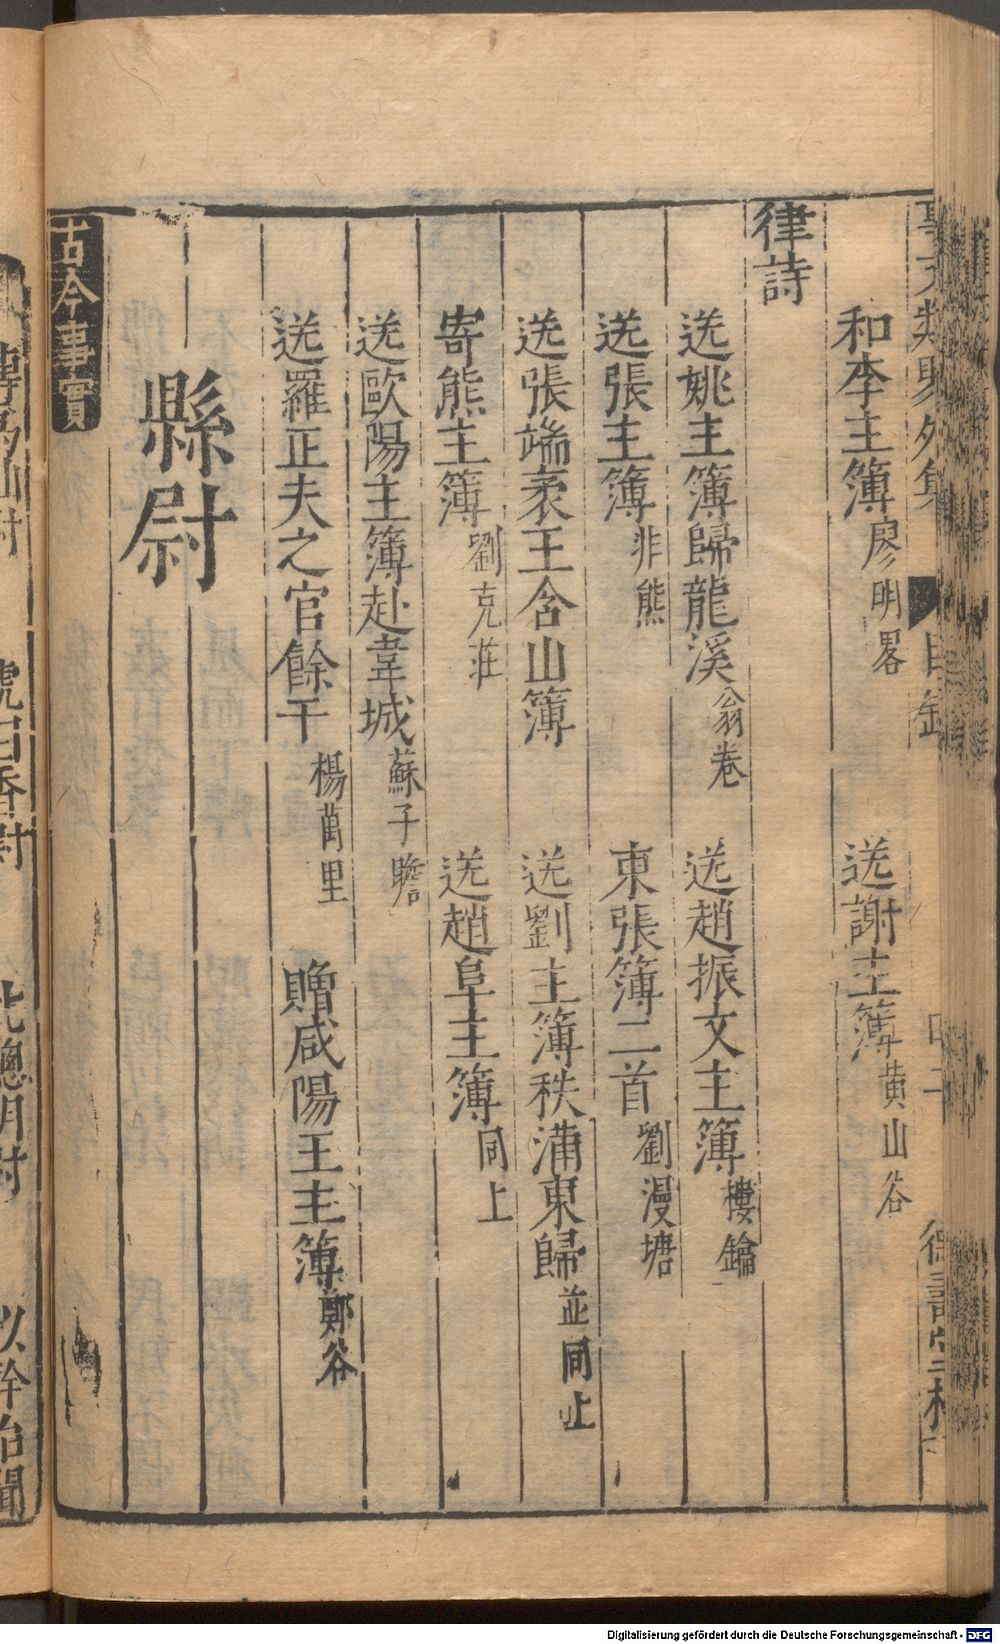 事文類聚外集 目錄
和李主簿 廖明畧 送謝主簿 黄山谷
律詩
送姚主簿歸龍溪 翁卷 送趙振文主簿 樓鑰
送張主簿 非熊 東張簿二首 劉漫塘
送張端衷王含山簿 送劉主簿秩滿東歸 並同上
寄熊主簿 劉克莊 送趙阜主簿 同上
送歐陽主簿赴韋城 蘇子瞻
送羅正夫之官餘干 楊萬里 贈咸陽王主簿 鄭谷
縣尉
古今事實
Digitalisierung gefördert durch die Deutsche Forschungsgemeinschaft - DFG